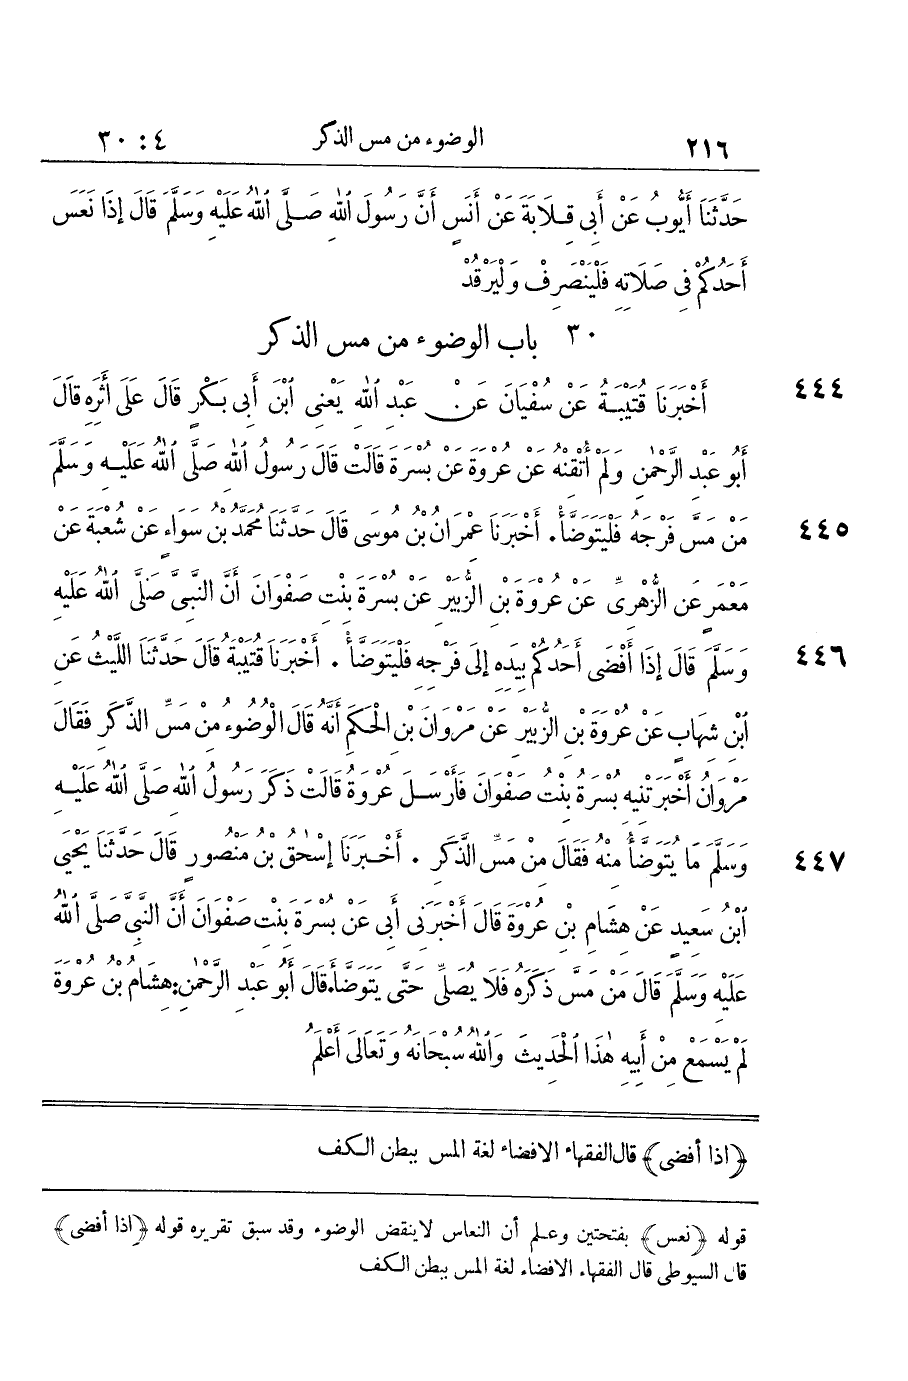 ٢١٦ الوضوء من مس الذكر ٤ : ٣٠
حَدَّثَنَا أَيُّوبُ عَنْ أَبِى قِلَابَةَ عَنْ أَنَسٍ أَنَّ رَسُولَ اللهِ صَلَّى اللهُ عَلَيْهِ وَسَلَّمَ قَالَ إِذَا نَعَسَ
أَحَدُكُمْ فِى صَلَاتِهِ فَلْيَنْصَرِفْ وَلْيَرْقُدْ
٣٠ باب الوضوء من مس الذكر
٤٤٤ أَخْبَرَنَا قُتَيْبَةُ عَنْ سُفْيَانَ عَنْ عَبْدِ اللهِ يَعْنِى ابْنَ أَبِى بَكْرٍ قَالَ عَلَى أَثَرِهِ قَالَ
أَبُو عَبْدِ الرَّحْمٰنِ وَلَمْ أُتْقِنْهُ عَنْ عُرْوَةَ عَنْ بُسْرَةَ قَالَتْ قَالَ رَسُولُ اللهِ صَلَّى اللهُ عَلَيْهِ وَسَلَّمَ
٤٤٥ مَنْ مَسَّ فَرْجَهُ فَلْيَتَوَضَّأْ. أَخْبَرَنَا عِمْرَانُ بْنُ مُوسَى قَالَ حَدَّثَنَا مُحَمَّدُ بْنُ سَوَاءٍ عَنْ شُعْبَةَ عَنْ
مَعْمَرٍ عَنِ الزُّهْرِىِّ عَنْ عُرْوَةَ بْنِ الزُّبَيْرِ عَنْ بُسْرَةَ بِنْتِ صَفْوَانَ أَنَّ النَّبِىَّ صَلَّى اللهُ عَلَيْهِ
٤٤٦ وَسَلَّمَ قَالَ إِذَا أَفْضَى أَحَدُكُمْ بِيَدِهِ إِلَى فَرْجِهِ فَلْيَتَوَضَّأْ . أَخْبَرَنَا قُتَيْبَةُ قَالَ حَدَّثَنَا اللَّيْثُ عَنِ
ابْنِ شِهَابٍ عَنْ عُرْوَةَ بْنِ الزُّبَيْرِ عَنْ مَرْوَانَ بْنِ الْحَكَمِ أَنَّهُ قَالَ الْوُضُوءُ مِنْ مَسِّ الذَّكَرِ فَقَالَ
مَرْوَانُ أَخْبَرَتْنِيهِ بُسْرَةُ بِنْتُ صَفْوَانَ فَأَرْسَلَ عُرْوَةُ قَالَتْ ذَكَرَ رَسُولُ اللهِ صَلَّى اللهُ عَلَيْهِ
٤٤٧ وَسَلَّمَ مَا يُتَوَضَّأُ مِنْهُ فَقَالَ مِنْ مَسِّ الذَّكَرِ . أَخْبَرَنَا إِسْحٰقُ بْنُ مَنْصُورٍ قَالَ حَدَّثَنَا يَحْيَى
ابْنُ سَعِيدٍ عَنْ هِشَامِ بْنِ عُرْوَةَ قَالَ أَخْبَرَنِى أَبِى عَنْ بُسْرَةَ بِنْتِ صَفْوَانَ أَنَّ النَّبِىَّ صَلَّى اللهُ
عَلَيْهِ وَسَلَّمَ قَالَ مَنْ مَسَّ ذَكَرَهُ فَلَا يُصَلِّى حَتَّى يَتَوَضَّأَ. قَالَ أَبُو عَبْدِ الرَّحْمٰنِ: هِشَامُ بْنُ عُرْوَةَ
لَمْ يَسْمَعْ مِنْ أَبِيهِ هٰذَا الْحَدِيثَ وَاللهُ سُبْحَانَهُ وَتَعَالَى أَعْلَمُ
﴿اذا أفضى﴾ قال الفقهاء الافضاء لغة المس ببطن الكف
قوله ﴿نعس﴾ بفتحتين وعلم أن النعاس لاينقض الوضوء وقد سبق تقريره قوله ﴿اذا أفضى﴾
قال السيوطى قال الفقهاء الافضاء لغة المس ببطن الكف